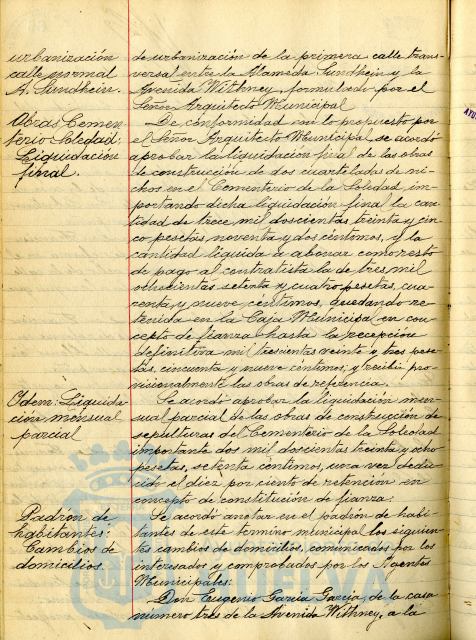 urbanización
calle normal
A. Sundheim.
de urbanización de la primera calle trans-
versal entre la Alameda Sundhein y la
Avenida Withney, formulado por el
Señor Arquitecto Municipal
Obras Cemen-
terio Soledad:
Liquidación
final.
De conformidad con lo propuesto por
el Señor Arquitecto Municipal se acordó
aprobar la liquidación final de las obras
de construcción de dos cuarteladas de ni-
chos en el Cementerio de la Soledad im-
portando dicha liquidación final la can-
tidad de trece mil doscientas treinta y cin-
co pesetas, noventa y dos céntimos, y la
cantidad líquida a abonar como resto
de pago al contratista la de tres mil
ochocientas setenta y cuatro pesetas, cua-
renta y nueve céntimos, quedando re-
tenida en la Caja Municipal en con-
cepto de fianza hasta la recepción
definitiva mil trescientas veinte y tres pese-
tas, cincuenta y nueve céntimos; y recibir pro-
visionalmente las obras de referencia.
Idem: Liquida-
ción mensual
parcial
Se acordó aprobar la liquidación men-
sual parcial de las obras de construcción de
sepulturas del Cementerio de la Soledad
importante dos mil doscientas treinta y ocho
pesetas, setenta céntimos, una vez dedu-
cido el diez por ciento de retención en
concepto de constitución de fianza.
Padrón de
habitantes:
Cambios de
domicilios.
Se acordó anotar en el padrón de habi-
tantes de este término municipal los siguien-
tes cambios de domicilios, comunicados por los
interesados y comprobados por los Agentes
Municipales:
Don Eugenio García García, de la casa
número tres de la Avenida Withney, a la
HUELVA